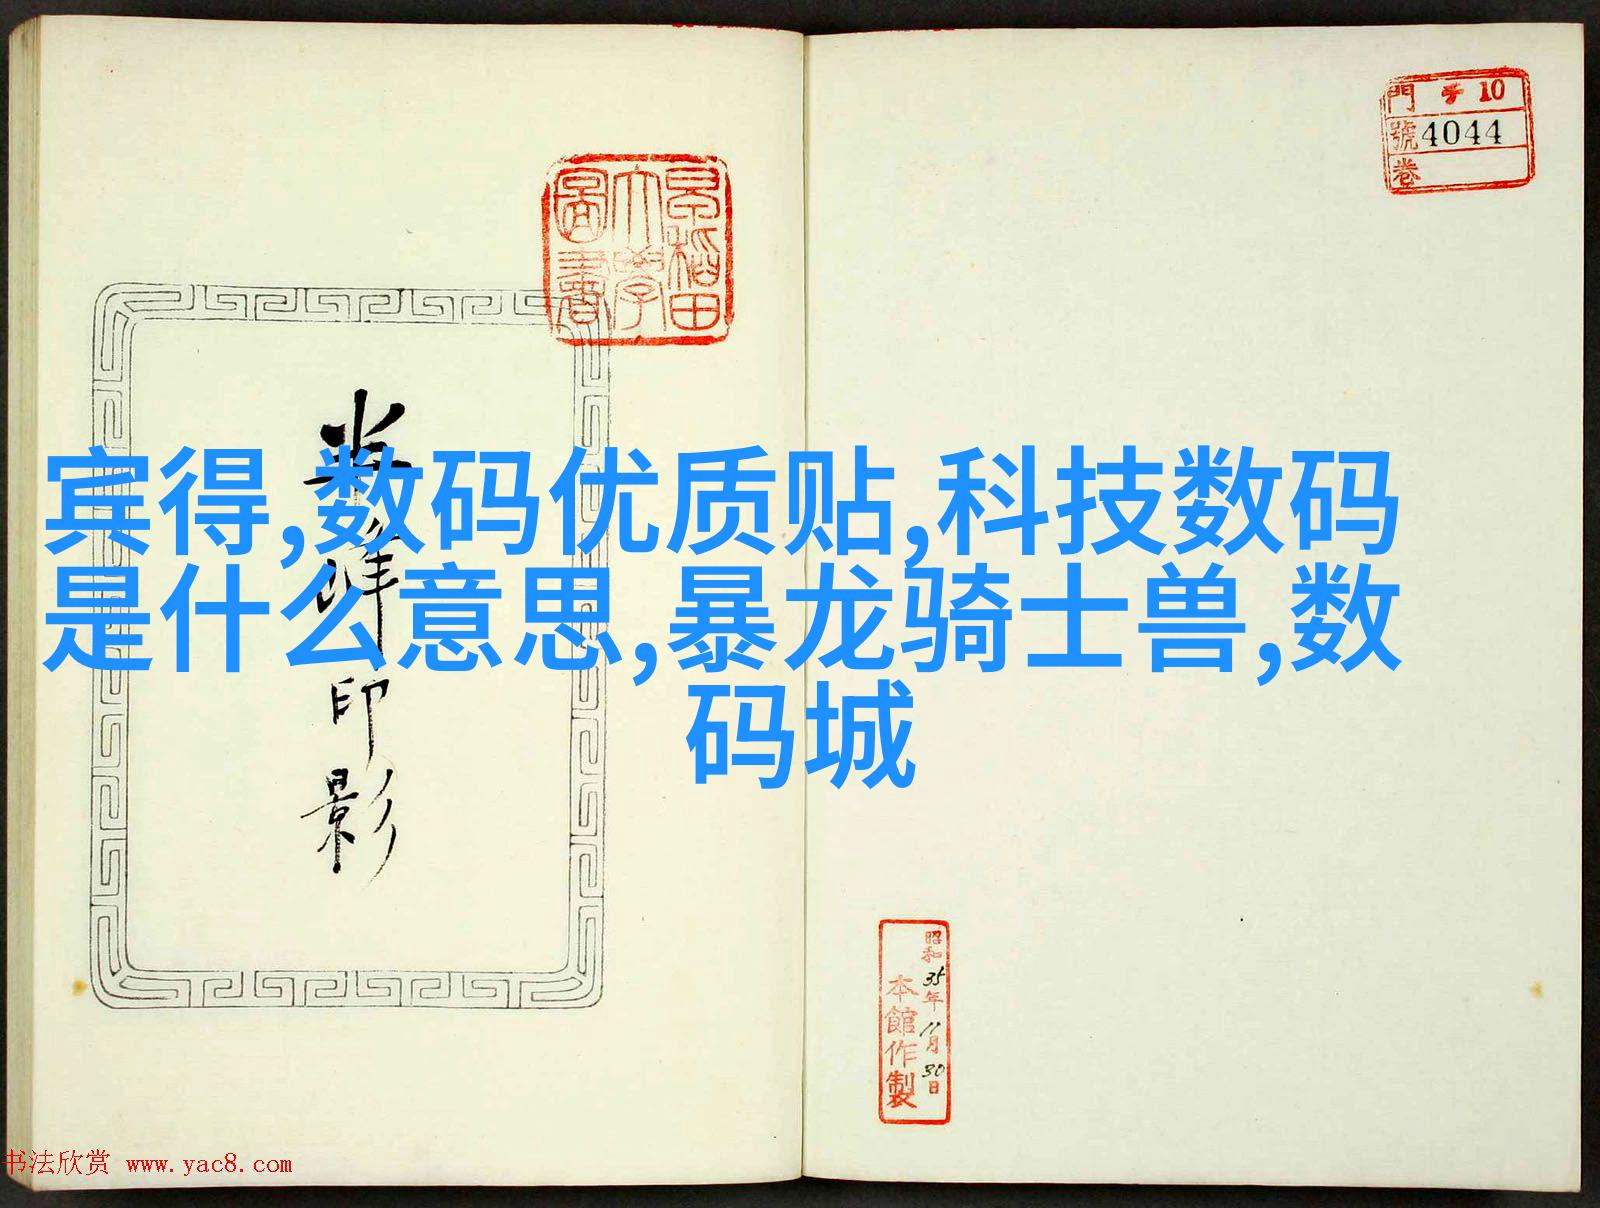 門 チ 10
號 4044
卷
早稻田
大學
圖書
宾得,数码优质贴,科技数码
是什么意思,暴龙骑士兽,数
码城
印影
昭和35年11月30日
本館作製
书法欣赏 www.yac8.com